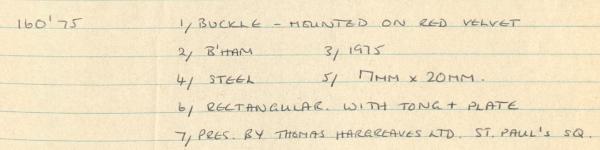 160'75 1/ BUCKLE - MOUNTED ON RED VELVET
2/ B'HAM 3/ 1975
4/ STEEL 5/ 17MM x 20MM.
6/ RECTANGULAR. WITH TONG + PLATE
7/ PRES. BY THOMAS HARGREAVES LTD. ST. PAUL'S SQ.